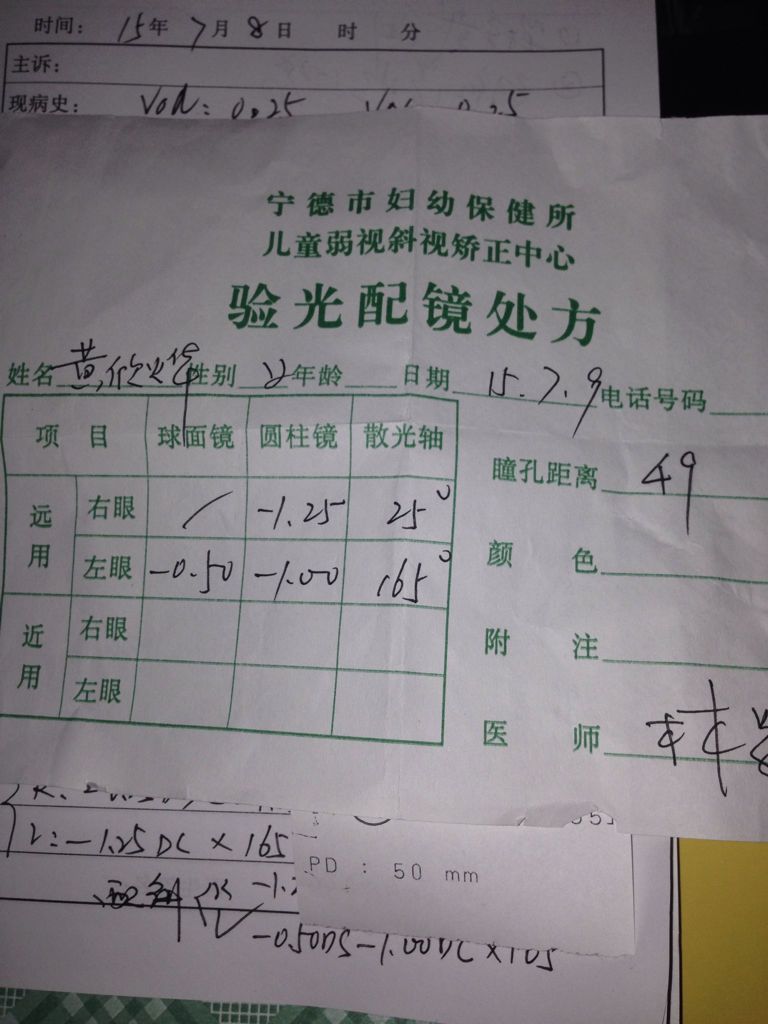 时间: 15年 7月 8日 时 分
主诉:
现病史: Vod: 0.25
宁德市妇幼保健所
儿童弱视斜视矫正中心
验光配镜处方
姓名 黄欣 性别 女 年龄 日期 15.7.9 电话号码
项目 球面镜 圆柱镜 散光轴
瞳孔距离 49
远用 右眼 / -1.25 25°
颜色
左眼 -0.50 -1.00 165°
近用 右眼
附注
左眼
医师
L: -1.25DC × 165
PD : 50 mm
配斜
-0.50DS -1.00DC × 165